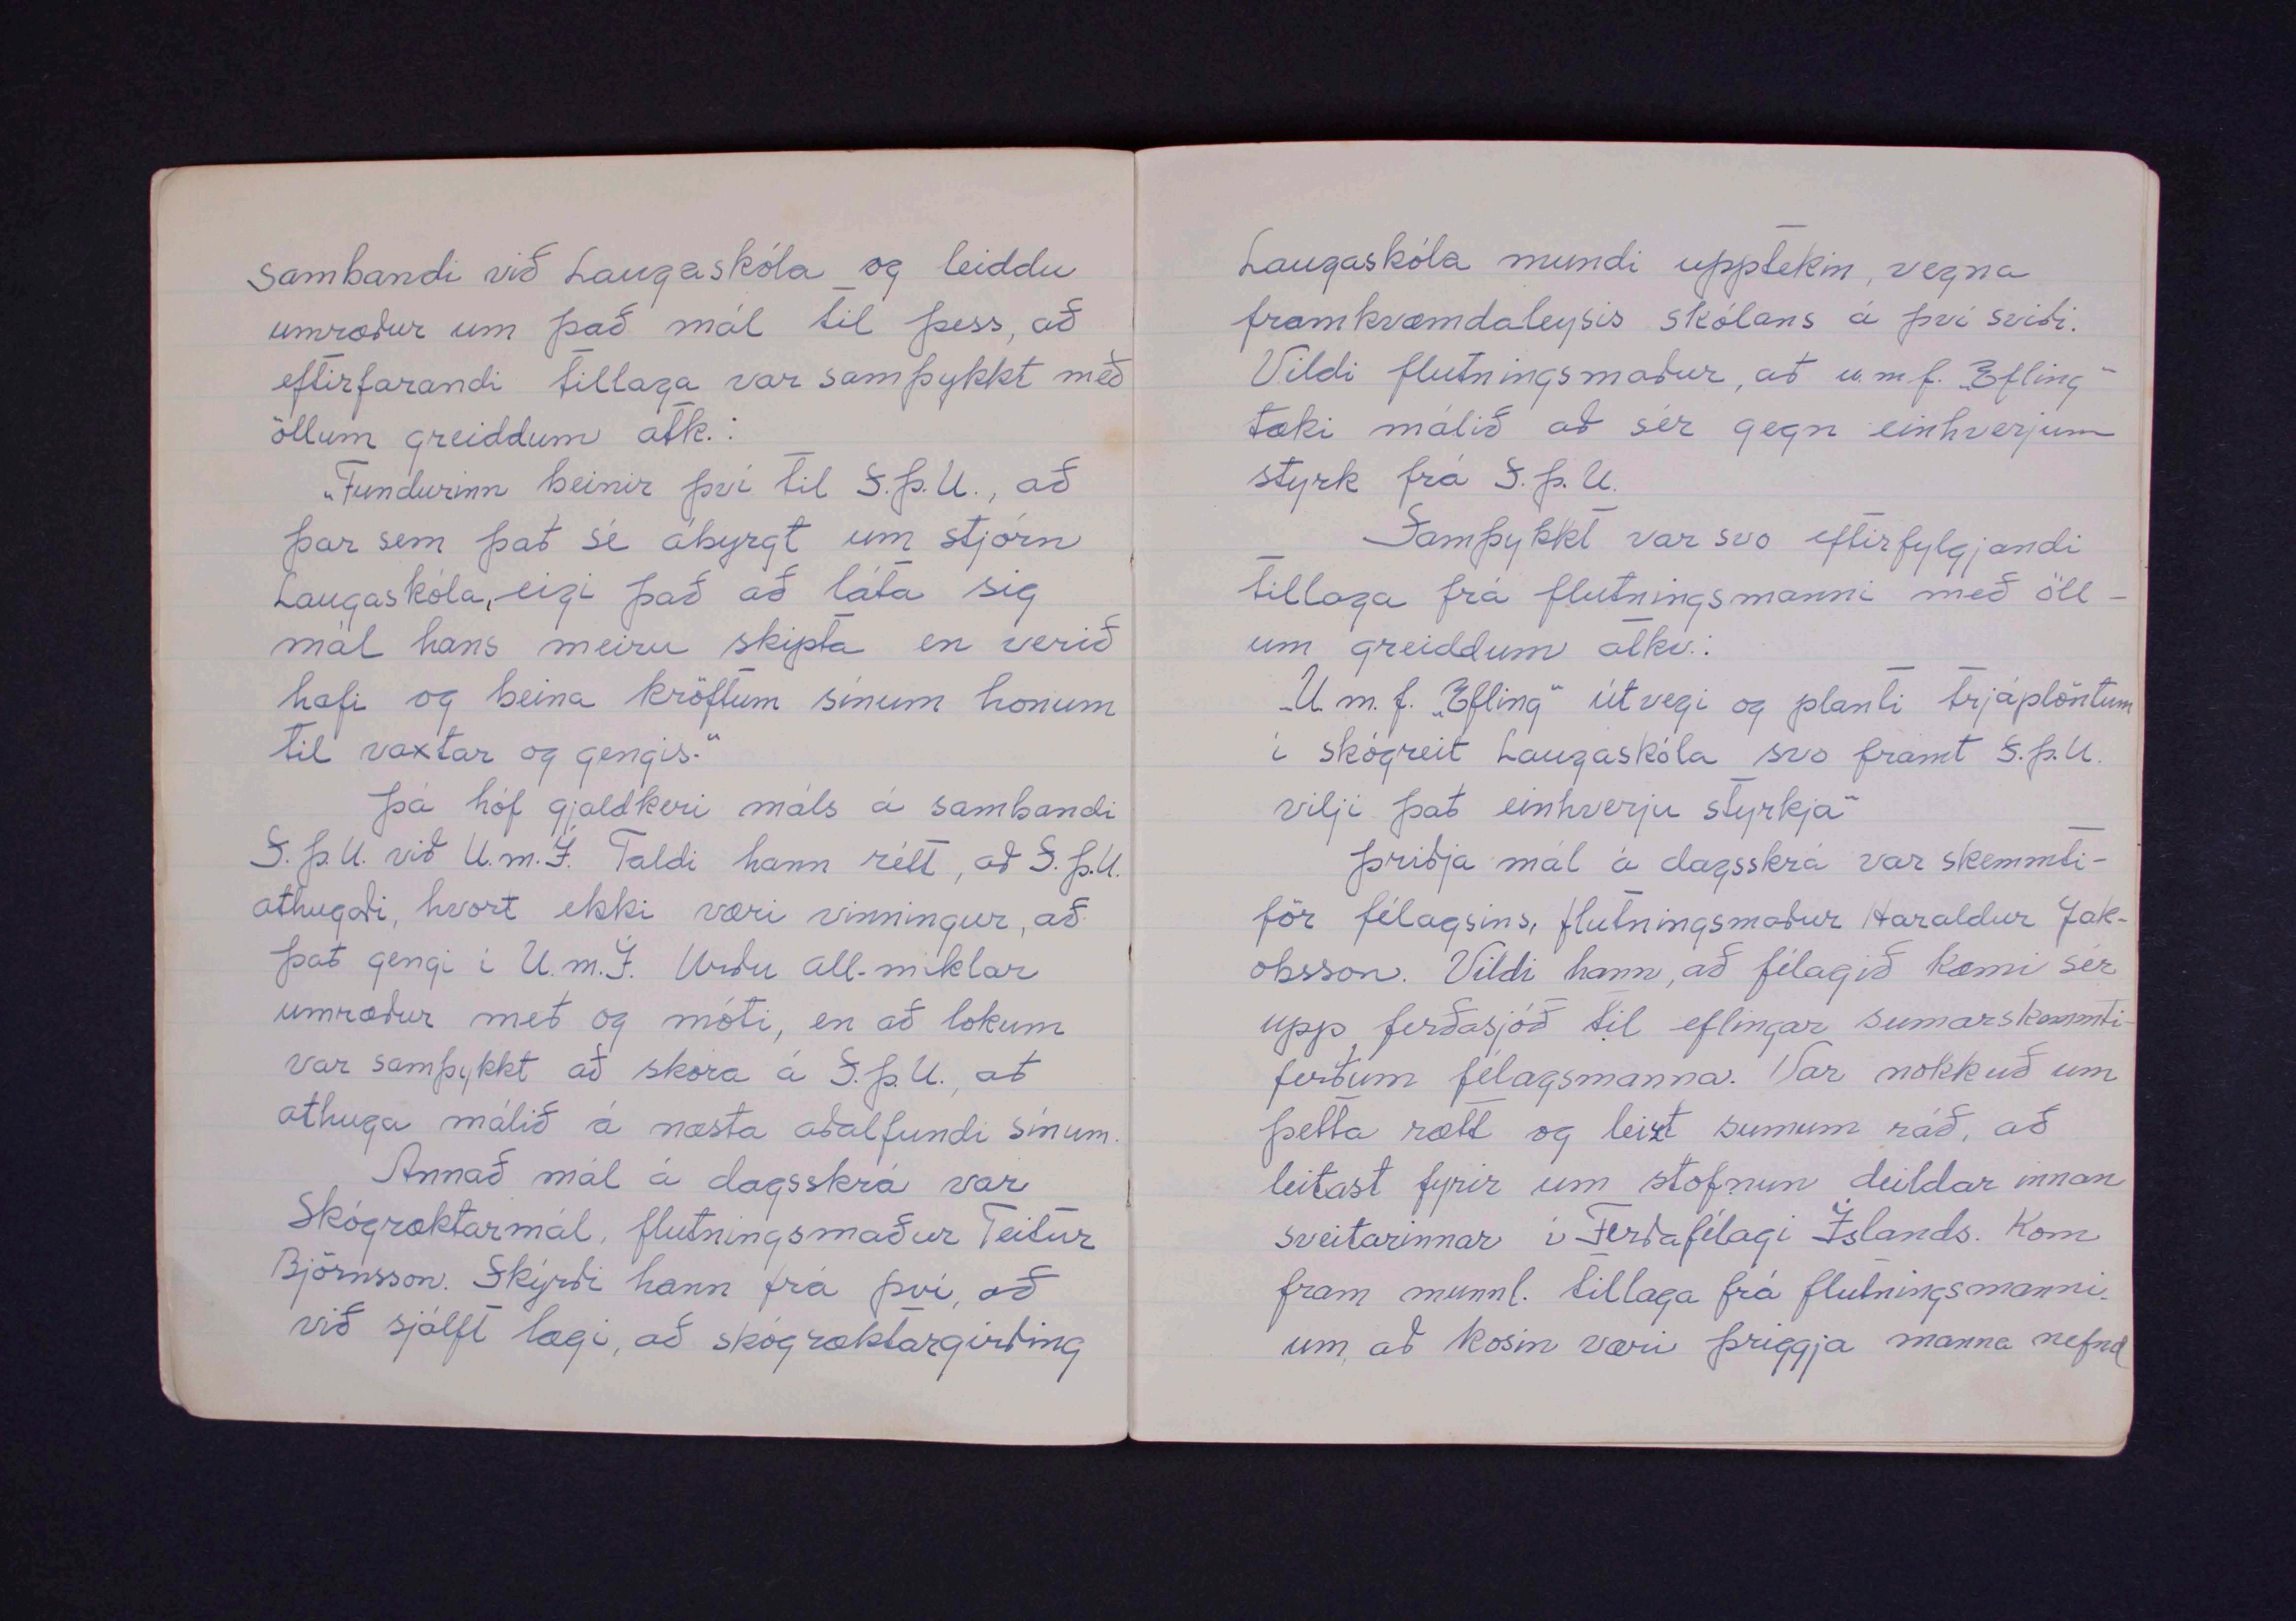 sambandi við Laugaskóla og leiddu
umræður um það mál til þess, að
eftirfarandi tillaga var samþykkt með
öllum greiddum atk.:
„Fundurinn beinir því til S.Þ.U., að
þar sem það sé ábyrgt um stjórn
Laugaskóla, eigi það að láta sig
mál hans meiru skipta en verið
hafi og beina kröftum sínum honum
til vaxtar og gengis.“
Þá hóf gjaldkeri máls á sambandi
S.Þ.U. við U.m.Í. Taldi hann rétt, að S.Þ.U.
athugaði, hvort ekki væri vinningur, að
það gengi í U.m.Í. Urðu all-miklar
umræður með og móti, en að lokum
var samþykkt að skora á S.Þ.U., að
athuga málið á næsta aðalfundi sínum.
Annað mál á dagsskrá var
Skógræktarmál, flutningsmaður Teitur
Björnsson. Skýrði hann frá því, að
við sjálft lægi, að skógræktargirðing
Laugaskóla mundi upptekin, vegna
framkvæmdaleysis skólans á því sviði.
Vildi flutningsmaður, að u.m.f. „Efling“
tæki málið að sér gegn einhverjum
styrk frá S.Þ.U.
Samþykkt var svo eftirfylgjandi
tillaga frá flutningsmanni með öll-
um greiddum atkv.:
„U.m.f. „Efling“ útvegi og planti trjáplöntum
í skógreit Laugaskóla svo framt S.Þ.U.
vilji það einhverju styrkja“
Þriðja mál á dagsskrá var skemmti-
för félagsins, flutningsmaður Haraldur Jak-
obsson. Vildi hann, að félagið kæmi sér
upp ferðasjóð til eflingar sumarskemmti-
ferðum félagsmanna. Var nokkuð um
þetta rætt og leizt sumum ráð, að
leitast fyrir um stofnun deildar innan
sveitarinnar í Ferðafélagi Íslands. Kom
fram munnl. tillaga frá flutningsmanni
um, að kosin væri þriggja manna nefnd